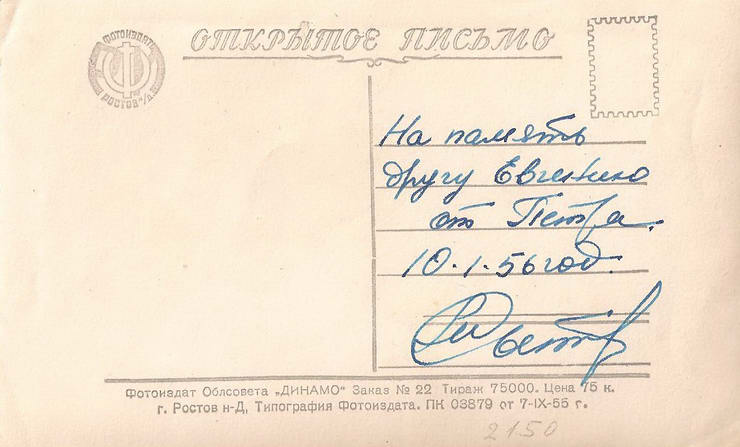 ФОТОИЗДАТ
РОСТОВ н/Д.
ОТКРЫТОЕ ПИСЬМО
На память
другу Евгению
от Петра.
10.1.56 год.
Фотоиздат Облсовета „ДИНАМО" Заказ № 22 Тираж 75000. Цена 75 к.
г. Ростов н-Д, Типография Фотоиздата. ПК 03879 от 7-IX-55 г.
2150